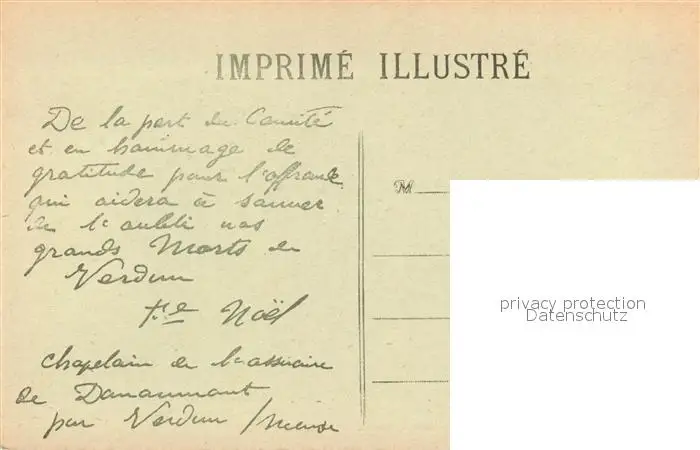 IMPRIMÉ ILLUSTRÉ
De la part du Comité
et en hommage de
gratitude pour l'offrande
qui aidera à sauver
de l'oubli nos
grands Morts de
Verdun
Noël
chapelain de l'ossuaire
de Douaumont
par Verdun /Meuse
M
privacy protection
Datenschutz